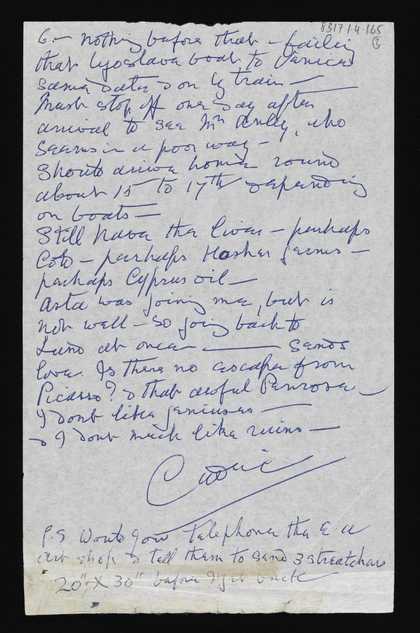 8317/1/4/165
6. — nothing before that — failing
that Yugoslava boat to Venice
same date & on by train —
Must stop off one day after
arrival to see Mrs, who
seems in a poor way —
Should arrive home round
about 15 to 17th depending
on boats —
Still have the liver — perhaps
— perhaps germs —
perhaps Cyprus oil —
Asta was joining me, but is
not well — so going back to
at once — sends
love. Is there no escape from
Picasso? & that awful Penrose —
I dont like geniuses —
& I dont much like ruins —
Cedric
P.S Would you telephone the
art shop & tell them to send 3 stretchers
20" X 30" before I get back